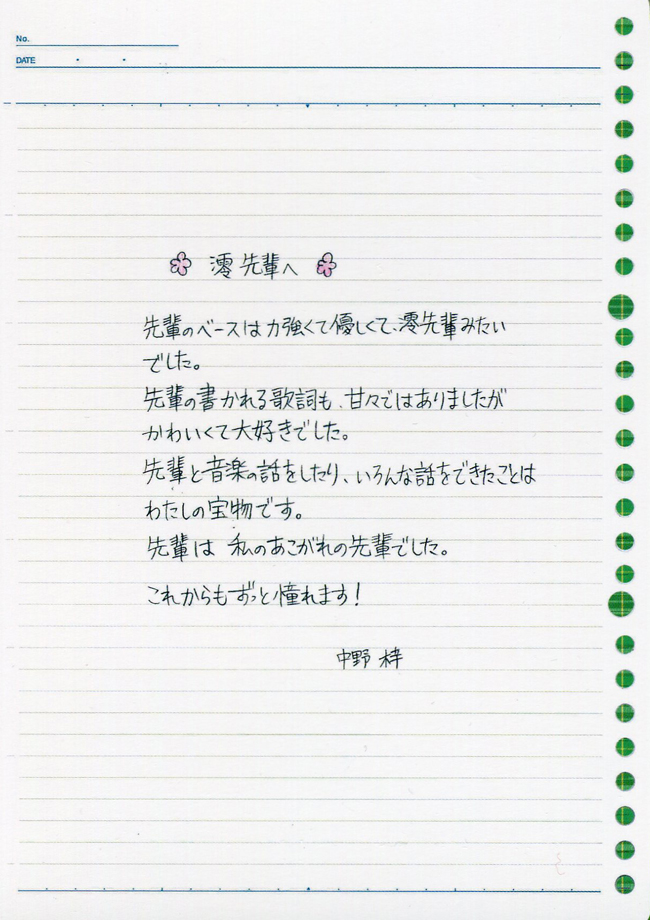 No.
DATE
澪先輩へ
先輩のベースは力強くて優しくて、澪先輩みたい
でした。
先輩の書かれる歌詞も、甘々ではありましたが
かわいくて大好きでした。
先輩と音楽の話をしたり、いろんな話をできたことは
わたしの宝物です。
先輩は 私のあこがれの先輩でした。
これからもずっと憧れます!
中野 梓